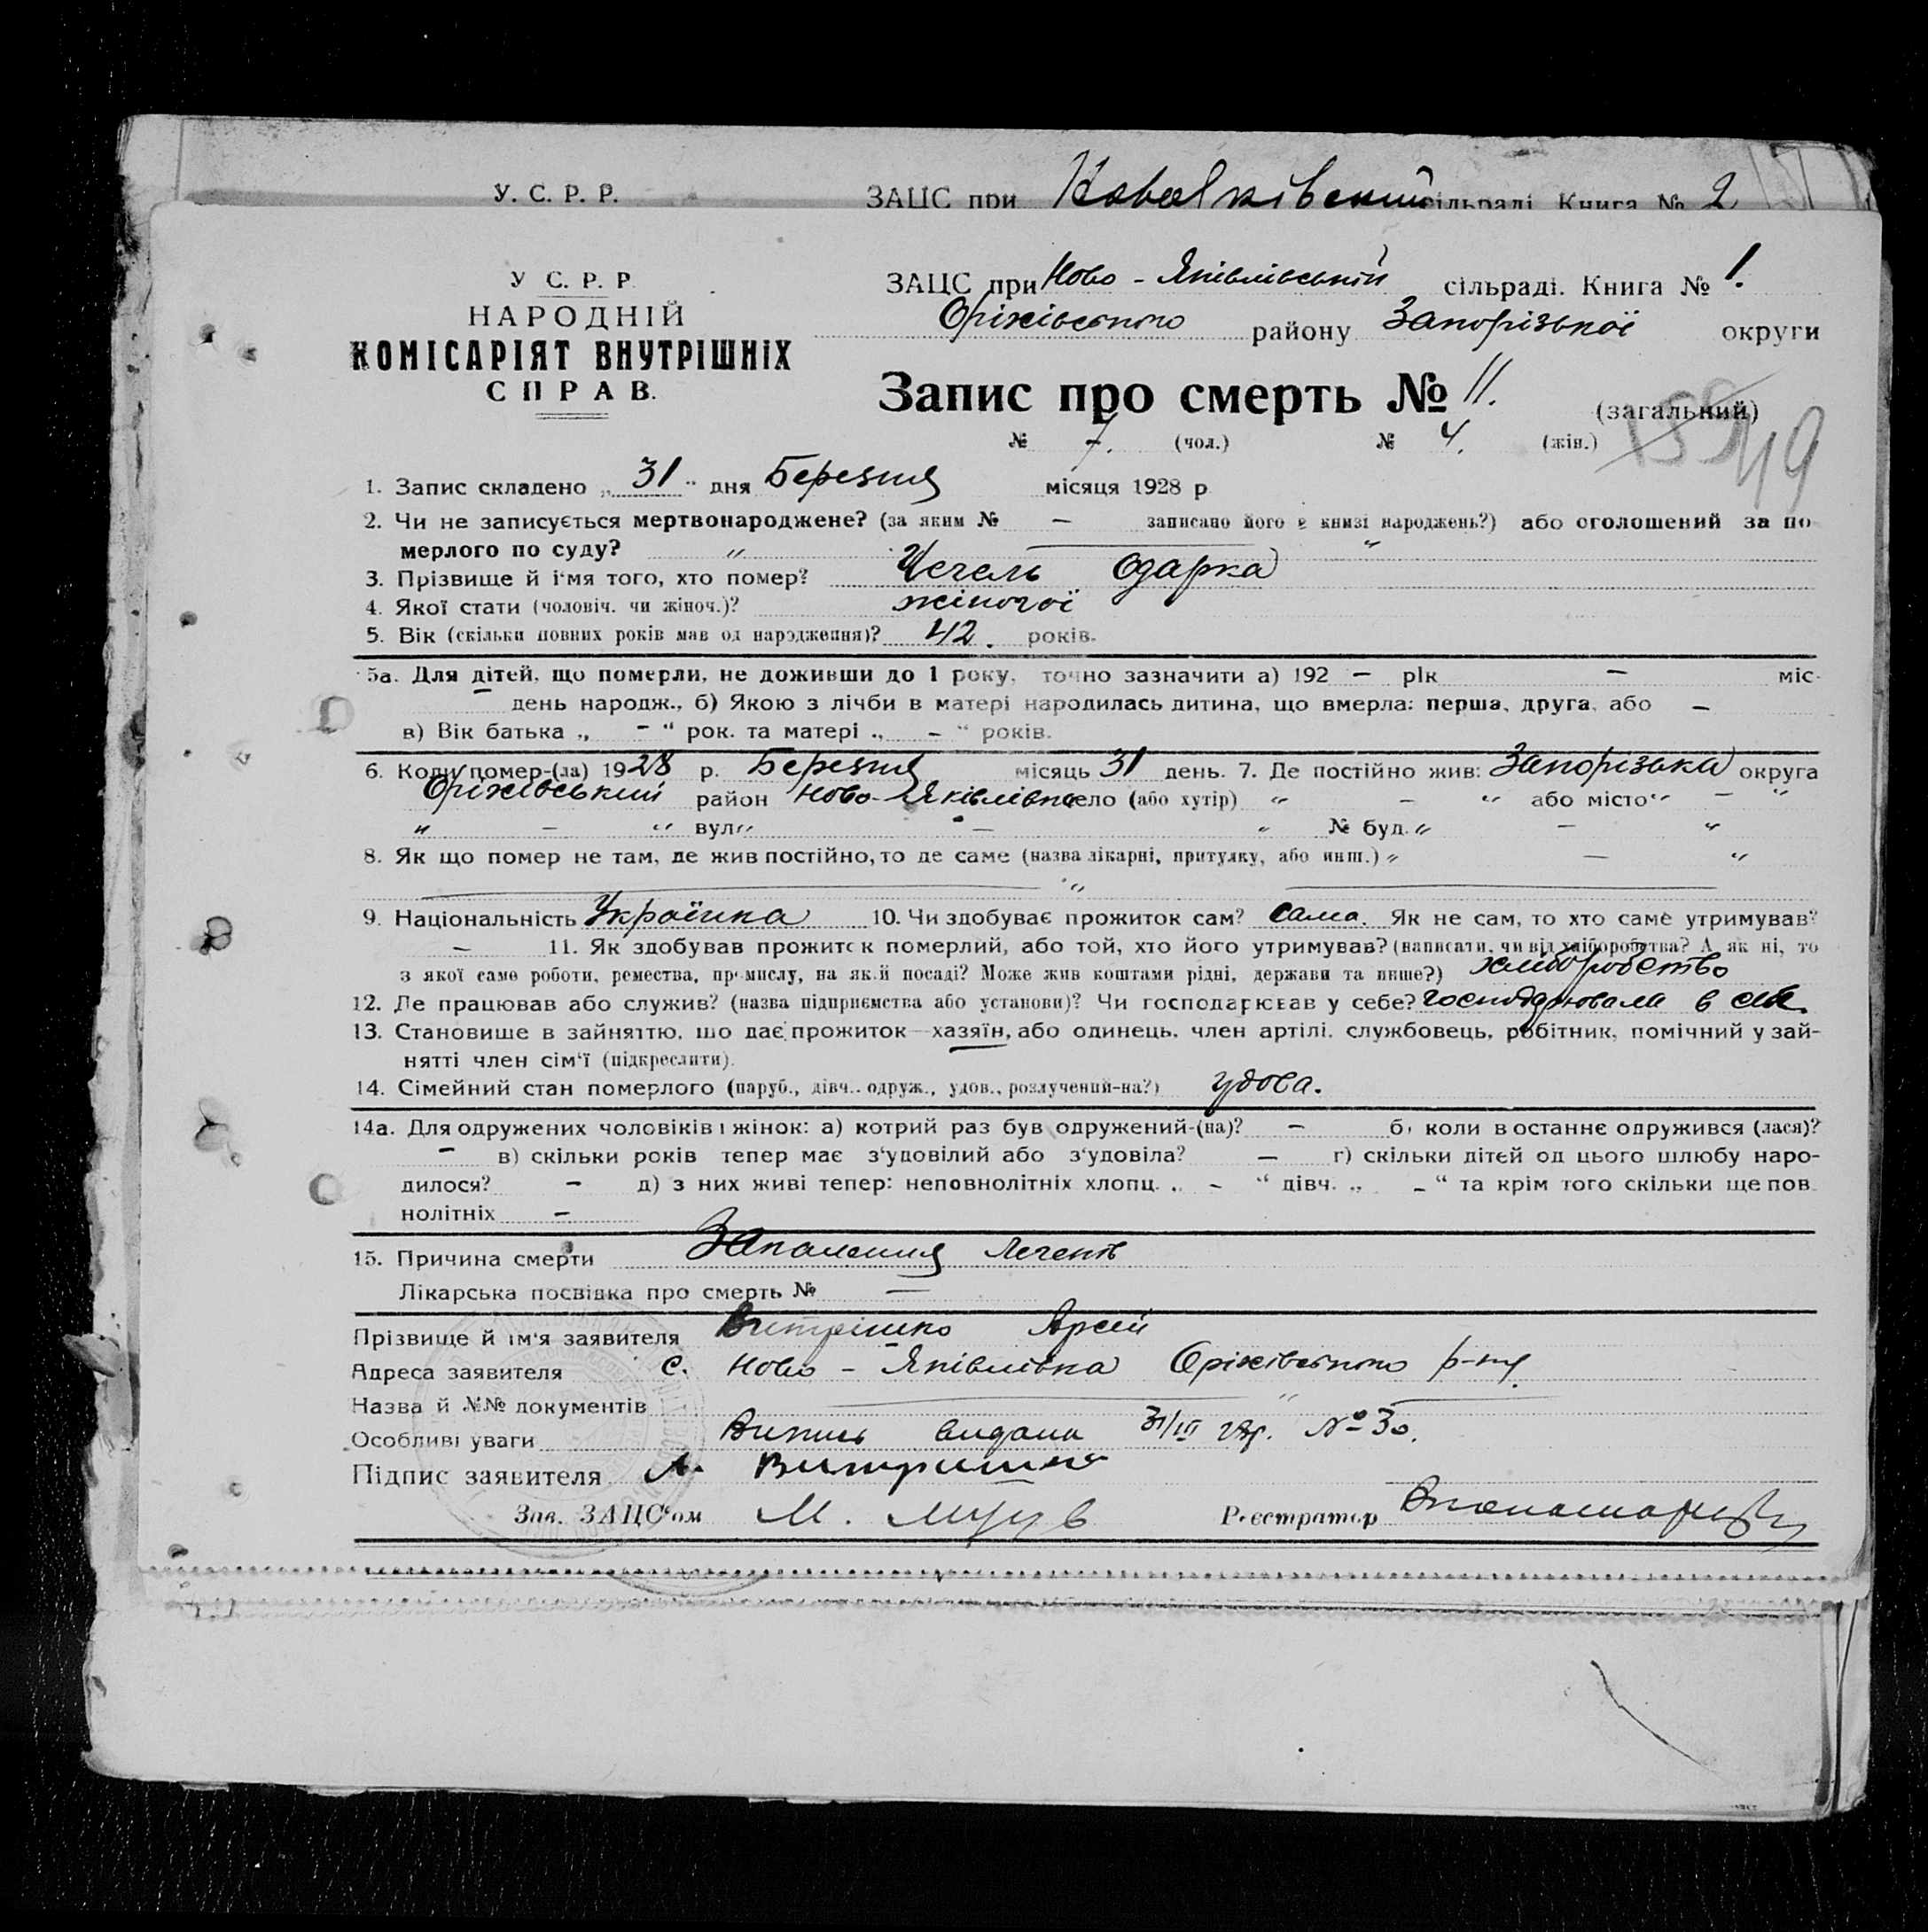 У. С. Р. Р.
ЗАЦС при сільраді Книга № 2
У С. Р. Р
НАРОДНІЙ
КОМІСАРІЯТ ВНУТРІШНІХ
СПРАВ.
ЗАЦС при Ново - Яківлівській сільраді. Книга № 1.
Оріхівського району Запорізької округи
Запис про смерть № 11. (загальний)
№ 7. (чол.) № 4. (жін.)
149
1. Запис складено „31“ дня Березня місяця 1928 р
2. Чи не записується мертвонароджене? (за яким № — записано його в книзі народжень?) або оголошений за по
мерлого по суду? „ — „
3. Прізвище й і'мя того, хто помер? Чечель Одарка
4. Якої стати (чоловіч. чи жіноч.)? жіночої
5. Вік (скільки повних років мав од народження)? 42. років.
5а. Для дітей, що померли, не доживши до 1 року, точно зазначити а) 192 — рік — міс.
— день народж., б) Якою з лічби в матері народилась дитина, що вмерла: перша, друга, або —
в) Вік батька „ — “ рок. та матері „ — “ років.
6. Коли помер-(ла) 1928 р. Березня місяць 31 день. 7. Де постійно жив: Запорізька округа
Оріхівський район Ново-Яківлівка село (або хутір) „ — “ або місто „ — “
„ — “ вул „ — “ № буд. „ — “
8. Як що помер не там, де жив постійно, то де саме (назва лікарні, притулку, або инш.) „ — “
— „ —
9. Національність Українка 10. Чи здобуває прожиток сам? сама. Як не сам, то хто саме утримував?
— 11. Як здобував прожиток померлий, або той, хто його утримував? (написати, чи від хліборобства? А як ні, то
з якої саме роботи, ремества, промислу, на якій посаді? Може жив коштами рідні, держави та инше?) хліборобство
12. Де працював або служив? (назва підприємства або установи)? Чи господарював у себе? господарювала в себе.
13. Становище в зайняттю, що дає прожиток—хазяїн, або одинець, член артілі, службовець, робітник, помічний у зай-
нятті член сім'ї (підкреслити).
14. Сімейний стан померлого (паруб., дівч., одруж., удов., розлучений-на?) удова.
14а. Для одружених чоловіків і жінок: а) котрий раз був одружений-(на)? — б) коли востаннє одружився (лася)?
— в) скільки років тепер має з'удовілий або з'удовіла? — г) скільки дітей од цього шлюбу наро-
дилося? — д) з них живі тепер: неповнолітніх хлопц. „ — “ дівч. „ — “ та крім того скільки ще пов
нолітніх —
15. Причина смерти Запалення легенів
Лікарська посвідка про смерть № —
Прізвище й ім'я заявителя Витришко Арсей
Адреса заявителя с. Ново - Яківлівка Оріхівського р-ну.
Назва й №№ документів — „ —
Особливі уваги Випись видана 31/III 28р. № 30.
Підпис заявителя А. Витришко
Зав. ЗАЦС'ом М. Реєстратор